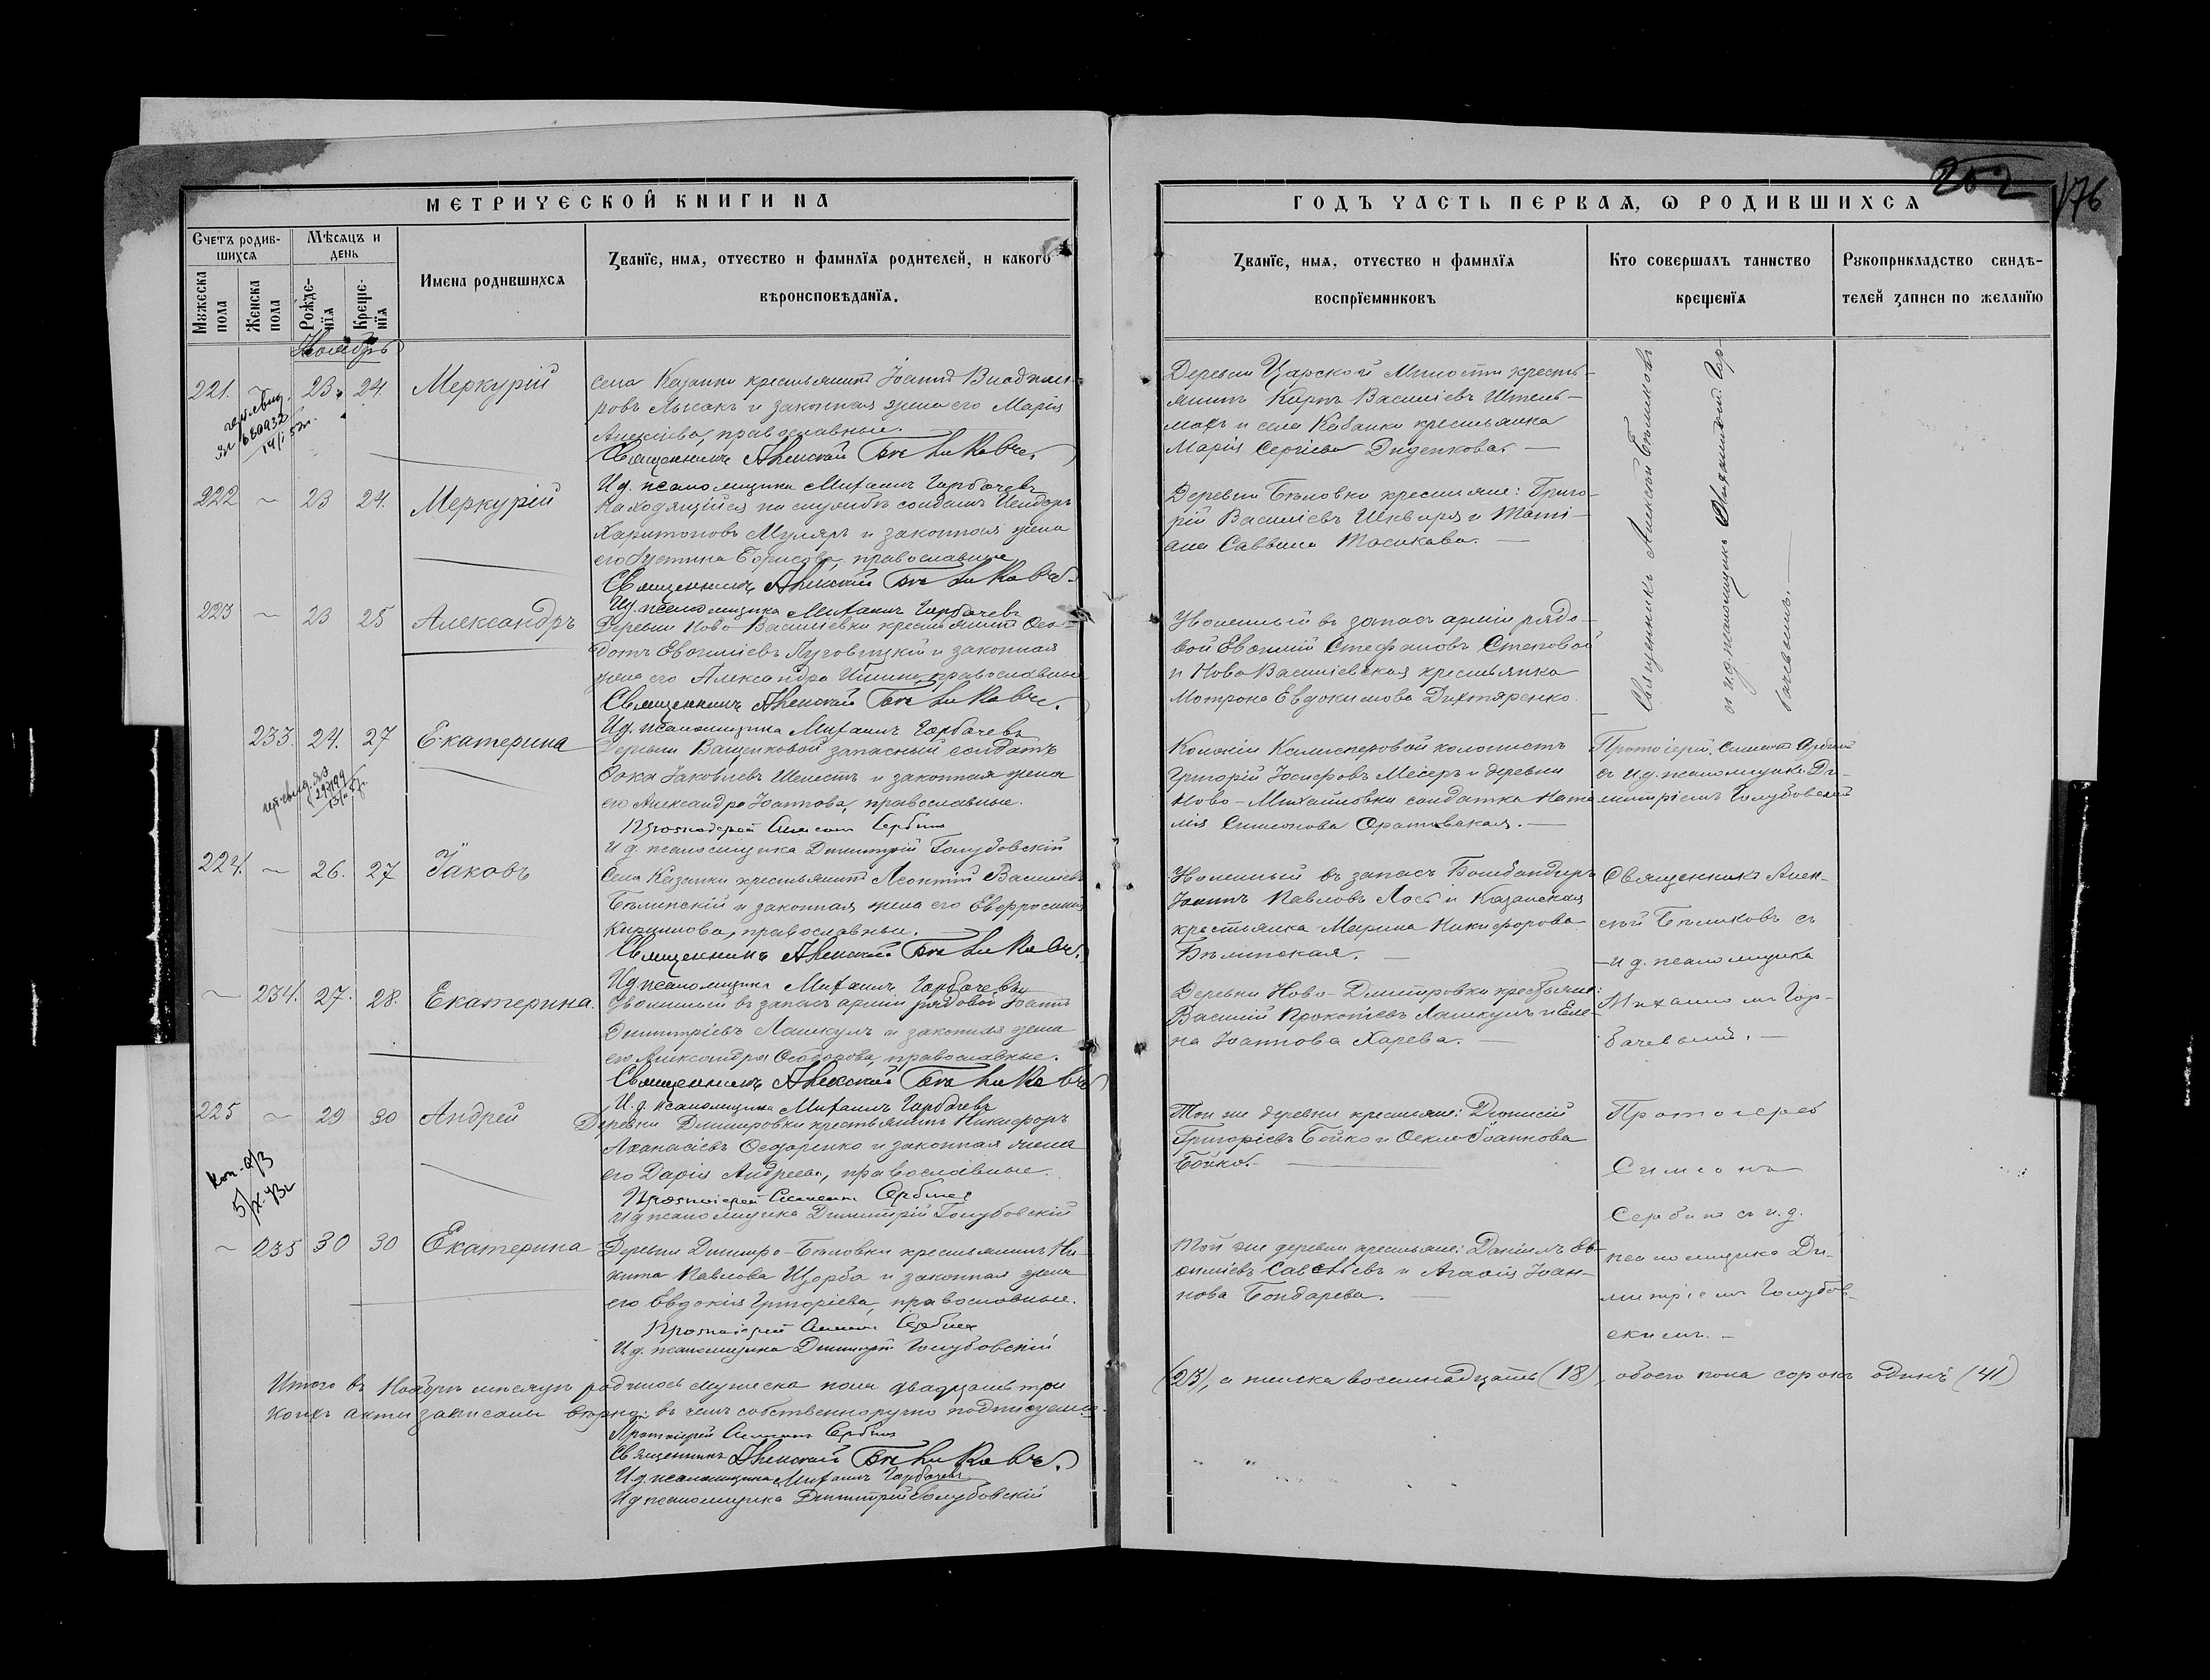 252
176
МЕТРИЧЕСКОЙ КНИГИ НА
ГОДЪ ЧАСТЬ ПЕРВАЯ, Ѡ РОДИВШИХСЯ
Счетъ родив-
шихся
Мѣсяцъ и
день
Мужеска
пола
Женска
пола
Рожде-
нїя
Креще-
нїя
Имена родившихся
Званїе, имя, отчество и фамилїя родителей, и какого
вѣроисповѣданїя.
Званїе, имя, отчество и фамилїя
воспрїемниковъ
Кто совершалъ таинство
крещенїя
Рукоприкладство свидѣ-
телей записи по желанїю
Ноябрь
221. ~ 23. 24. Меркурій
Села Казанки крестьянинъ Іоаннъ Владими-
ровъ Лысакъ и законная жена его Марія
Алексіева, православные.
Священникъ Алексій Бѣликовъ.
И.д. псаломщика Михаилъ Горбачевъ
Деревни Царской Милости кресть-
янинъ Карпъ Василіевъ Штель-
махъ и села Казанки крестьянка
Марія Сергіева Диденкова. —
Священникъ Алексій Бѣликовъ
съ и.д. псаломщика Михаиломъ Гор-
бачевымъ. —
222 ~ 23 24. Меркурій
Находящійся на службѣ солдатъ
Харитоновъ Муляръ и законная жена
его Устина Борисова, православные
Священникъ Алексій Бѣликовъ.
И.д. псаломщика Михаилъ Горбачевъ
Деревни Бѣловки крестьяне: Григо-
рій Василіевъ Шквыря и Тати-
ана Саввина Мосикова. —
223 ~ 23 25 Александръ
Деревни Ново-Василіевки крестьянинъ Ѳео-
дотъ Евѳиміевъ и законная
жена его Александра Ильина, православные
Священникъ Алексій Бѣликовъ.
И.д. псаломщика Михаилъ Горбачевъ
Уволенный въ запасъ арміи рядо-
вой Евѳимій Стефановъ Степовой
и Ново Василіевская крестьянка
Мотрона Евдокимова Дихтяренко.
233. 24. 27 Екатерина
Деревни Ващенковой запасный солдатъ
Ѳока Іаковлевъ Шелестъ и законная жена
его Александра Іоаннова, православные.
Протоіерей Симеонъ Сербинъ
И.д. псаломщика Димитрій Голубовскій
Колоніи колонистъ
Григорій Іосифовъ Месеръ и деревни
Ново-Михайловки солдатка Ната-
лія Симонова Оратовская. —
Протоіерей Симеонъ Сербинъ
съ и.д. псаломщика Ди-
митріемъ Голубовскимъ
224. ~ 26. 27 Іаковъ
Села Казанки крестьянинъ Леонтій Василіевъ
Бѣлинскій и законная жена его Евфросинія
Кириллова, православные. —
Священникъ Алексій Бѣликовъ.
И.д. псаломщика Михаилъ Горбачевъ
Уволенный въ запасъ Бомбандиръ
Іоаннъ Павловъ Лось и Казанская
крестьянка Марина Никифорова
Бѣлинская. —
Священникъ Алек-
сій Бѣликовъ съ
и.д. псаломщика
Михаиломъ Гор-
бачевымъ. —
~ 234. 27. 28. Екатерина.
Уволенный въ запасъ арміи рядовой Іоаннъ
Димитріевъ Лашкулъ и законная жена
его Александра Ѳеодорова, православные.
Священникъ Алексій Бѣликовъ
И.д. псаломщика Михаилъ Горбачевъ
Деревни Ново-Дмитровки крестьяне:
Василій Прокопіевъ Лашкулъ и Еле-
на Іоаннова Харева. —
225 ~ 29 30 Андрей
Деревни Дмитровки крестьянинъ Никифоръ
Аѳанасіевъ Ѳедоренко и законная жена
его Дарія Андреева, православные.
Протоіерей Симеонъ Сербинъ
И.д. псаломщика Димитрій Голубовскій
Той же деревни крестьяне: Діонисій
Григоріевъ Бойко и Ѳекла Іоаннова
Бойко. —
Протоіерей
Симеонъ
Сербинъ съ и.д.
псаломщика Ди-
митріемъ Голубов-
скимъ. —
Коп.
~ 235 30 30 Екатерина
Деревни Димитро-Бѣловки крестьянинъ Ни-
кита Павловъ Щорба и законная жена
его Евдокія Григоріева, православные.
Протоіерей Симеонъ Сербинъ
И.д. псаломщика Димитрій Голубовскій
Той же деревни крестьяне: Даніилъ Ев-
ѳиміевъ и Агаѳія Іоан-
нова Бондарева. —
Итого въ Ноябрѣ мѣсяцѣ родилось мужеска пола двадцать три
(23), а женска восемнадцать (18), обоего пола сорокъ одинъ (41)
коихъ акты записаны вѣрно, въ чемъ собственноручно подписуемся.
Протоіерей Симеонъ Сербинъ
Священникъ Алексій Бѣликовъ.
И.д. псаломщика Михаилъ Горбачевъ
И.д. псаломщика Димитрій Голубовскій